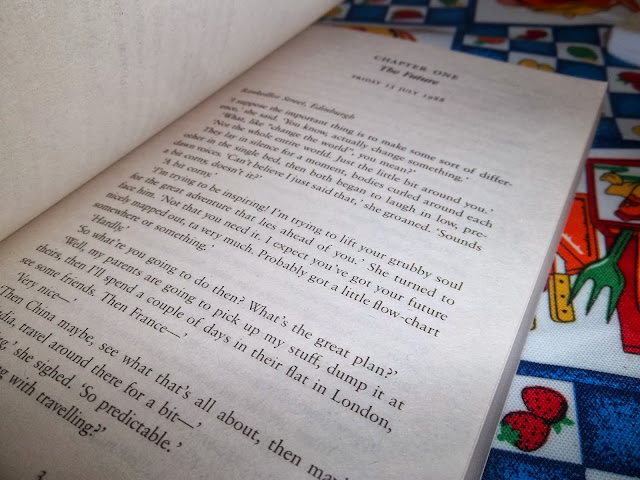 CHAPTER ONE
The Future
FRIDAY 15 JULY 1988
Rankeillor Street, Edinburgh
'I suppose the important thing is to make some sort of differ-
ence,' she said. 'You know, actually change something.'
'What, like "change the world", you mean?'
'Not the whole entire world. Just the little bit around you.'
They lay in silence for a moment, bodies curled around each
other in the single bed, then both began to laugh in low, pre-
dawn voices. 'Can't believe I just said that,' she groaned. 'Sounds
a bit corny, doesn't it?'
'A bit corny.'
'I'm trying to be inspiring! I'm trying to lift your grubby soul
for the great adventure that lies ahead of you.' She turned to
face him. 'Not that you need it. I expect you've got your future
nicely mapped out, ta very much. Probably got a little flow-chart
somewhere or something.'
'Hardly.'
'So what're you going to do then? What's the great plan?'
'Well, my parents are going to pick up my stuff, dump it at
theirs, then I'll spend a couple of days in their flat in London,
see some friends. Then France—'
'Very nice—'
Then China maybe, see what that's all about, then may
dia, travel around there for a bit—'
g,' she sighed. 'So predictable.'
g with travelling?'
3